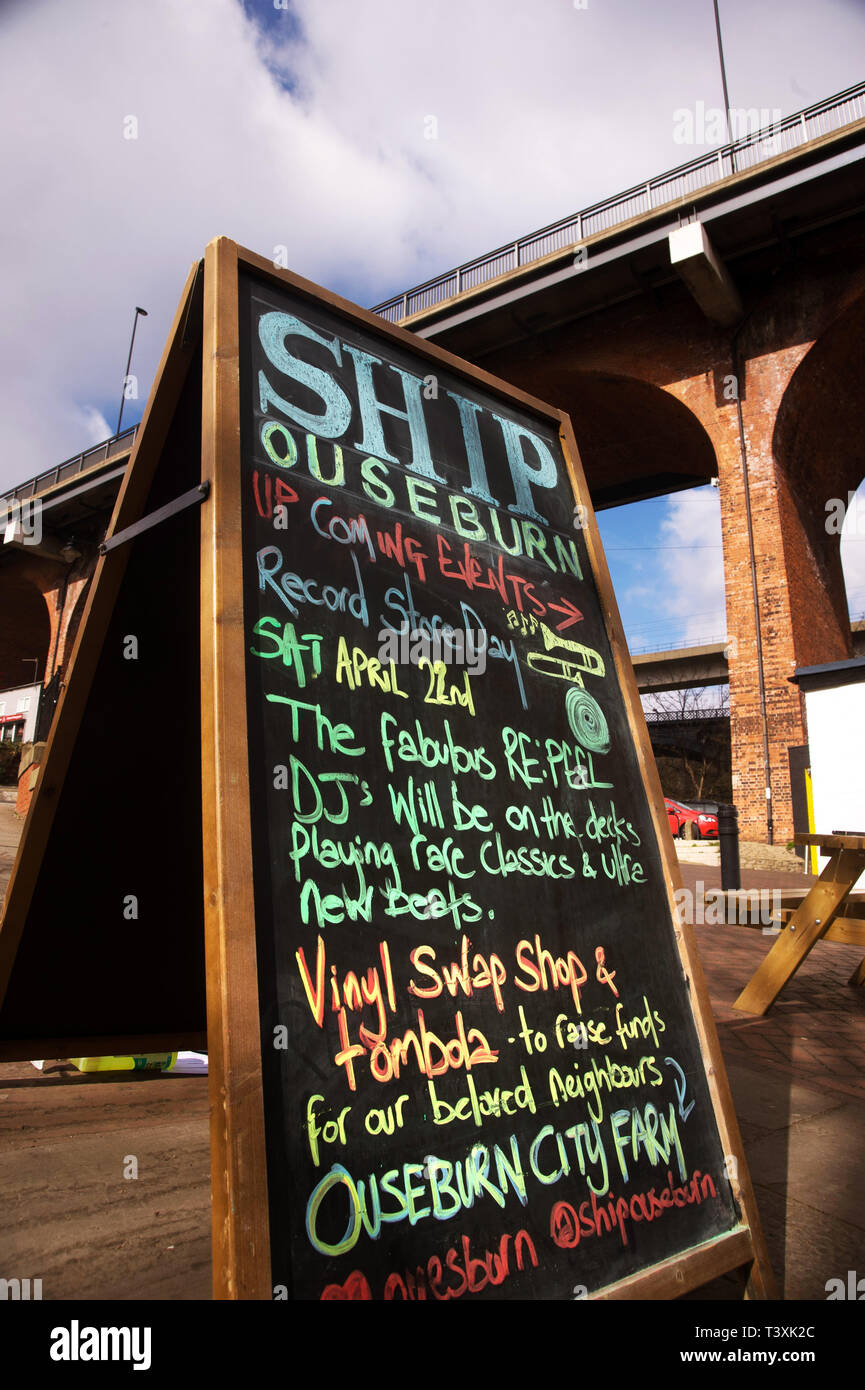 SHIP
OUSEBURN
UP COMING EVENTS
Record Store Day
SAT APRIL 22nd
The fabulous RE:PEEL
DJ's Will be on the decks
Playing rare Classics & ultra
new beats.
Vinyl Swap Shop &
tombola - to raise funds
for our beloved neighbours
OUSEBURN CITY FARM
@shipouseburn
alamy
a
Image ID: T3XK2C
www.alamy.com